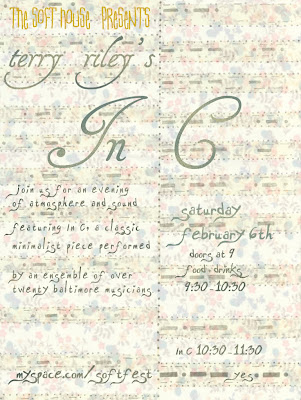 THE SOFT HOUSE PRESENTS
terry riley's
In C
join us for an evening
of atmosphere and sound
featuring In C, a classic
minimalist piece performed
by an ensemble of over
twenty baltimore musicians
saturday
february 6th
doors at 9
food + drinks
9:30 - 10:30
In C 10:30 - 11:30
myspace.com/softfest
yes